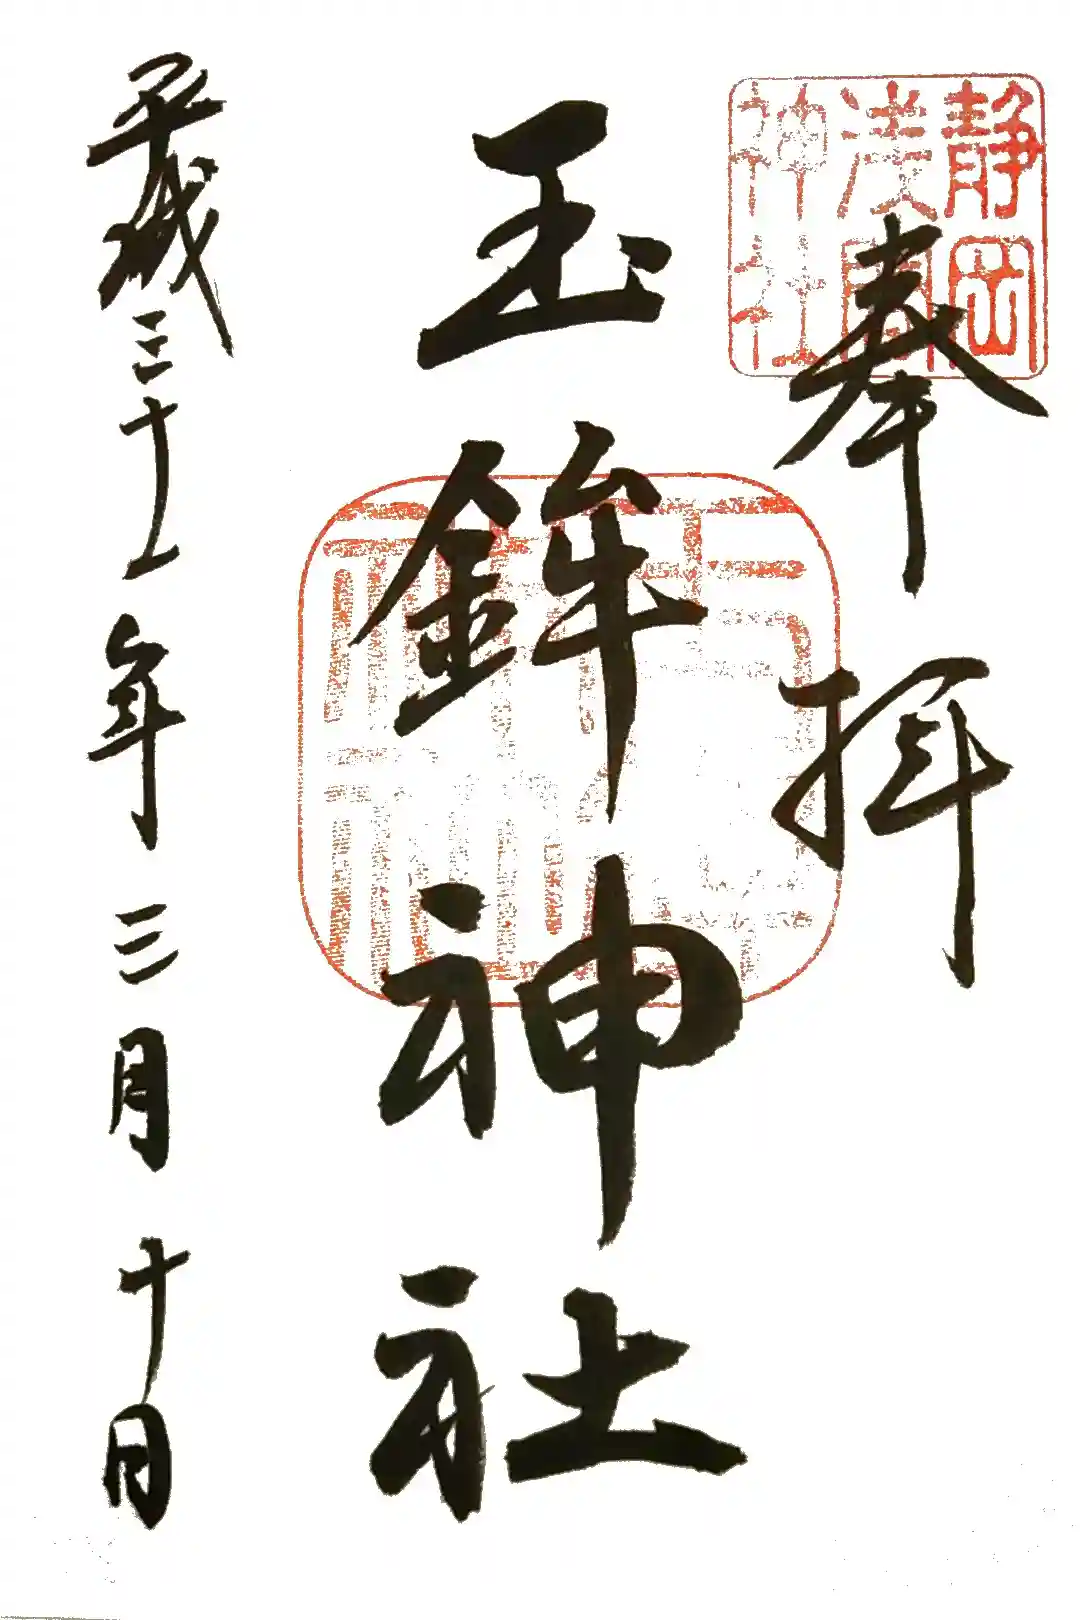 静岡
浅間
神社
奉拝
玉鉾神社
平成三十一年三月十日